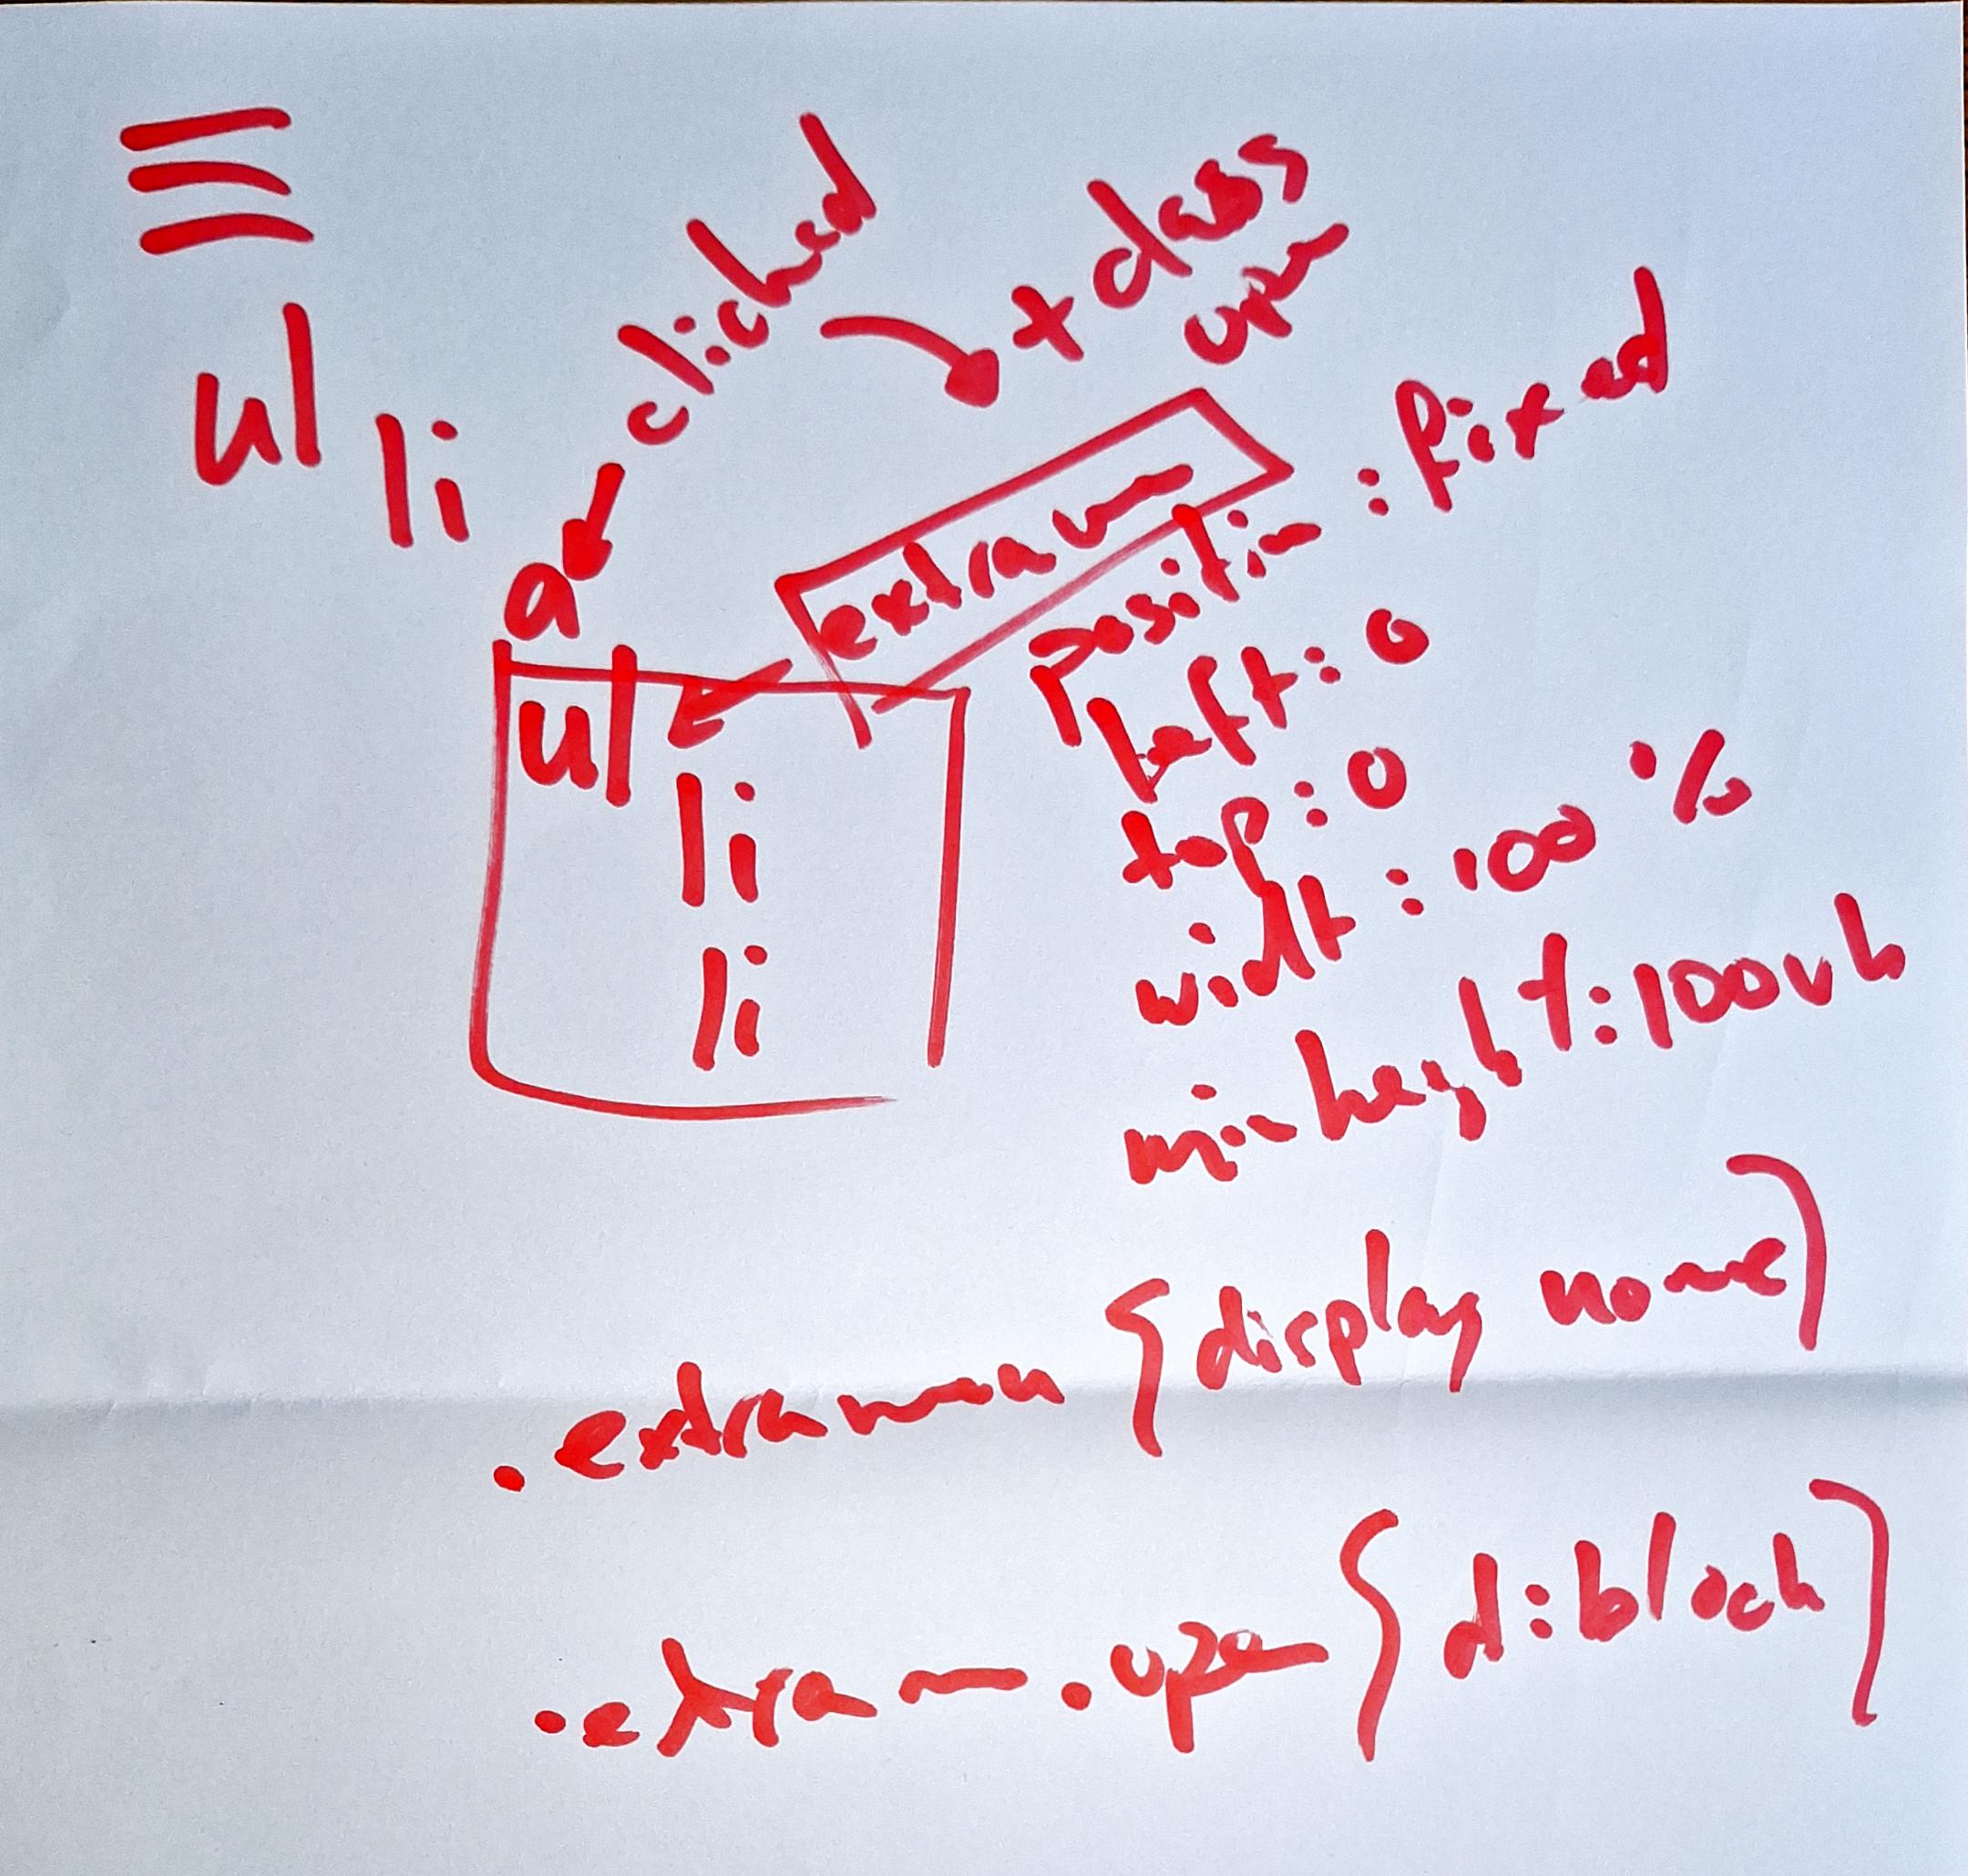 ul
li
clicked
+ class
open
a
extram
ul
li
li
position : fixed
left : 0
top : 0
widt : 100 %
min height : 100vh
.extramenu { display none }
.extram .open { d: block }